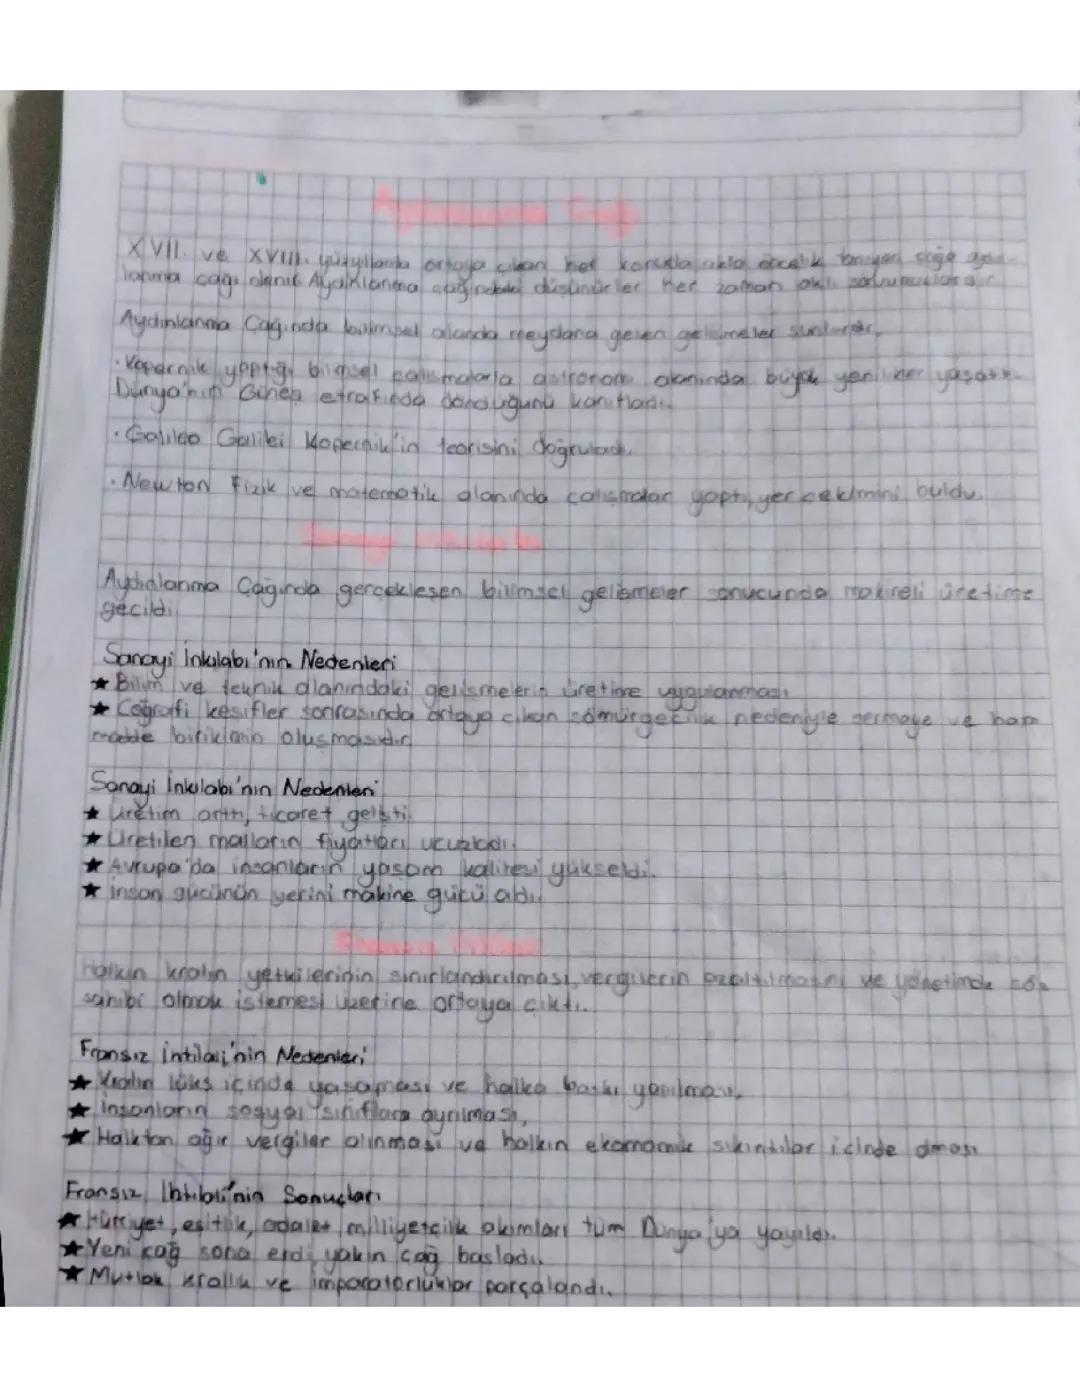 Aydınlanma Çağı
XVII. ve XVIII. yüzyıllarda ortaya çıkan her konuda akla öncelik tanıyan çağa aydın-
lanma çağı denir. Aydınlanma çağındaki düşünürler her zaman aklı savunmuşlardır.
Aydınlanma Çağında bilimsel alanda meydana gelen gelişmeler şunlardır;
· Kopernik yaptığı bilimsel çalışmalarla astronomi alanında büyük yenilikler yaşattı.
Dünya'nın Güneş etrafında döndüğünü kanıtladı.
· Galileo Galilei Kopernik'in teorisini doğruladı.
· Newton Fizik ve matematik alanında çalışmalar yaptı, yer çekimini buldu.
Sanayi İnkılabı
Aydınlanma Çağında gerçekleşen bilimsel gelişmeler sonucunda makineli üretime
geçildi.
Sanayi İnkılabı'nın Nedenleri
★ Bilim ve teknik alanındaki gelişmelerin üretime uygulanması.
★ Coğrafi keşifler sonrasında ortaya çıkan sömürgecilik nedeniyle sermaye ve ham
madde birikiminin oluşmasıdır.
Sanayi İnkılabı'nın Nedenleri
★ Üretim arttı, ticaret gelişti.
★ Üretilen malların fiyatları ucuzladı.
★ Avrupa'da insanların yaşam kalitesi yükseldi.
★ İnsan gücünün yerini makine gücü aldı.
Fransız İhtilali
Halkın kralın yetkilerinin sınırlandırılması, vergilerin azaltılmasını ve yönetimde söz
sahibi olmak istemesi üzerine ortaya çıktı.
Fransız İntilali'nin Nedenleri
★ Kralın lüks içinde yaşaması ve halka baskı yapılması,
★ İnsanların sosyal sınıflara ayrılması,
★ Halktan ağır vergiler alınması ve halkın ekonomik sıkıntılar içinde olması
Fransız İhtilali'nin Sonuçları
★ Hürriyet, eşitlik, adalet, milliyetçilik akımları tüm Dünya'ya yayıldı.
★ Yeni çağ sona erdi, yakın çağ başladı.
★ Mutlak krallık ve imparatorluklar parçalandı.